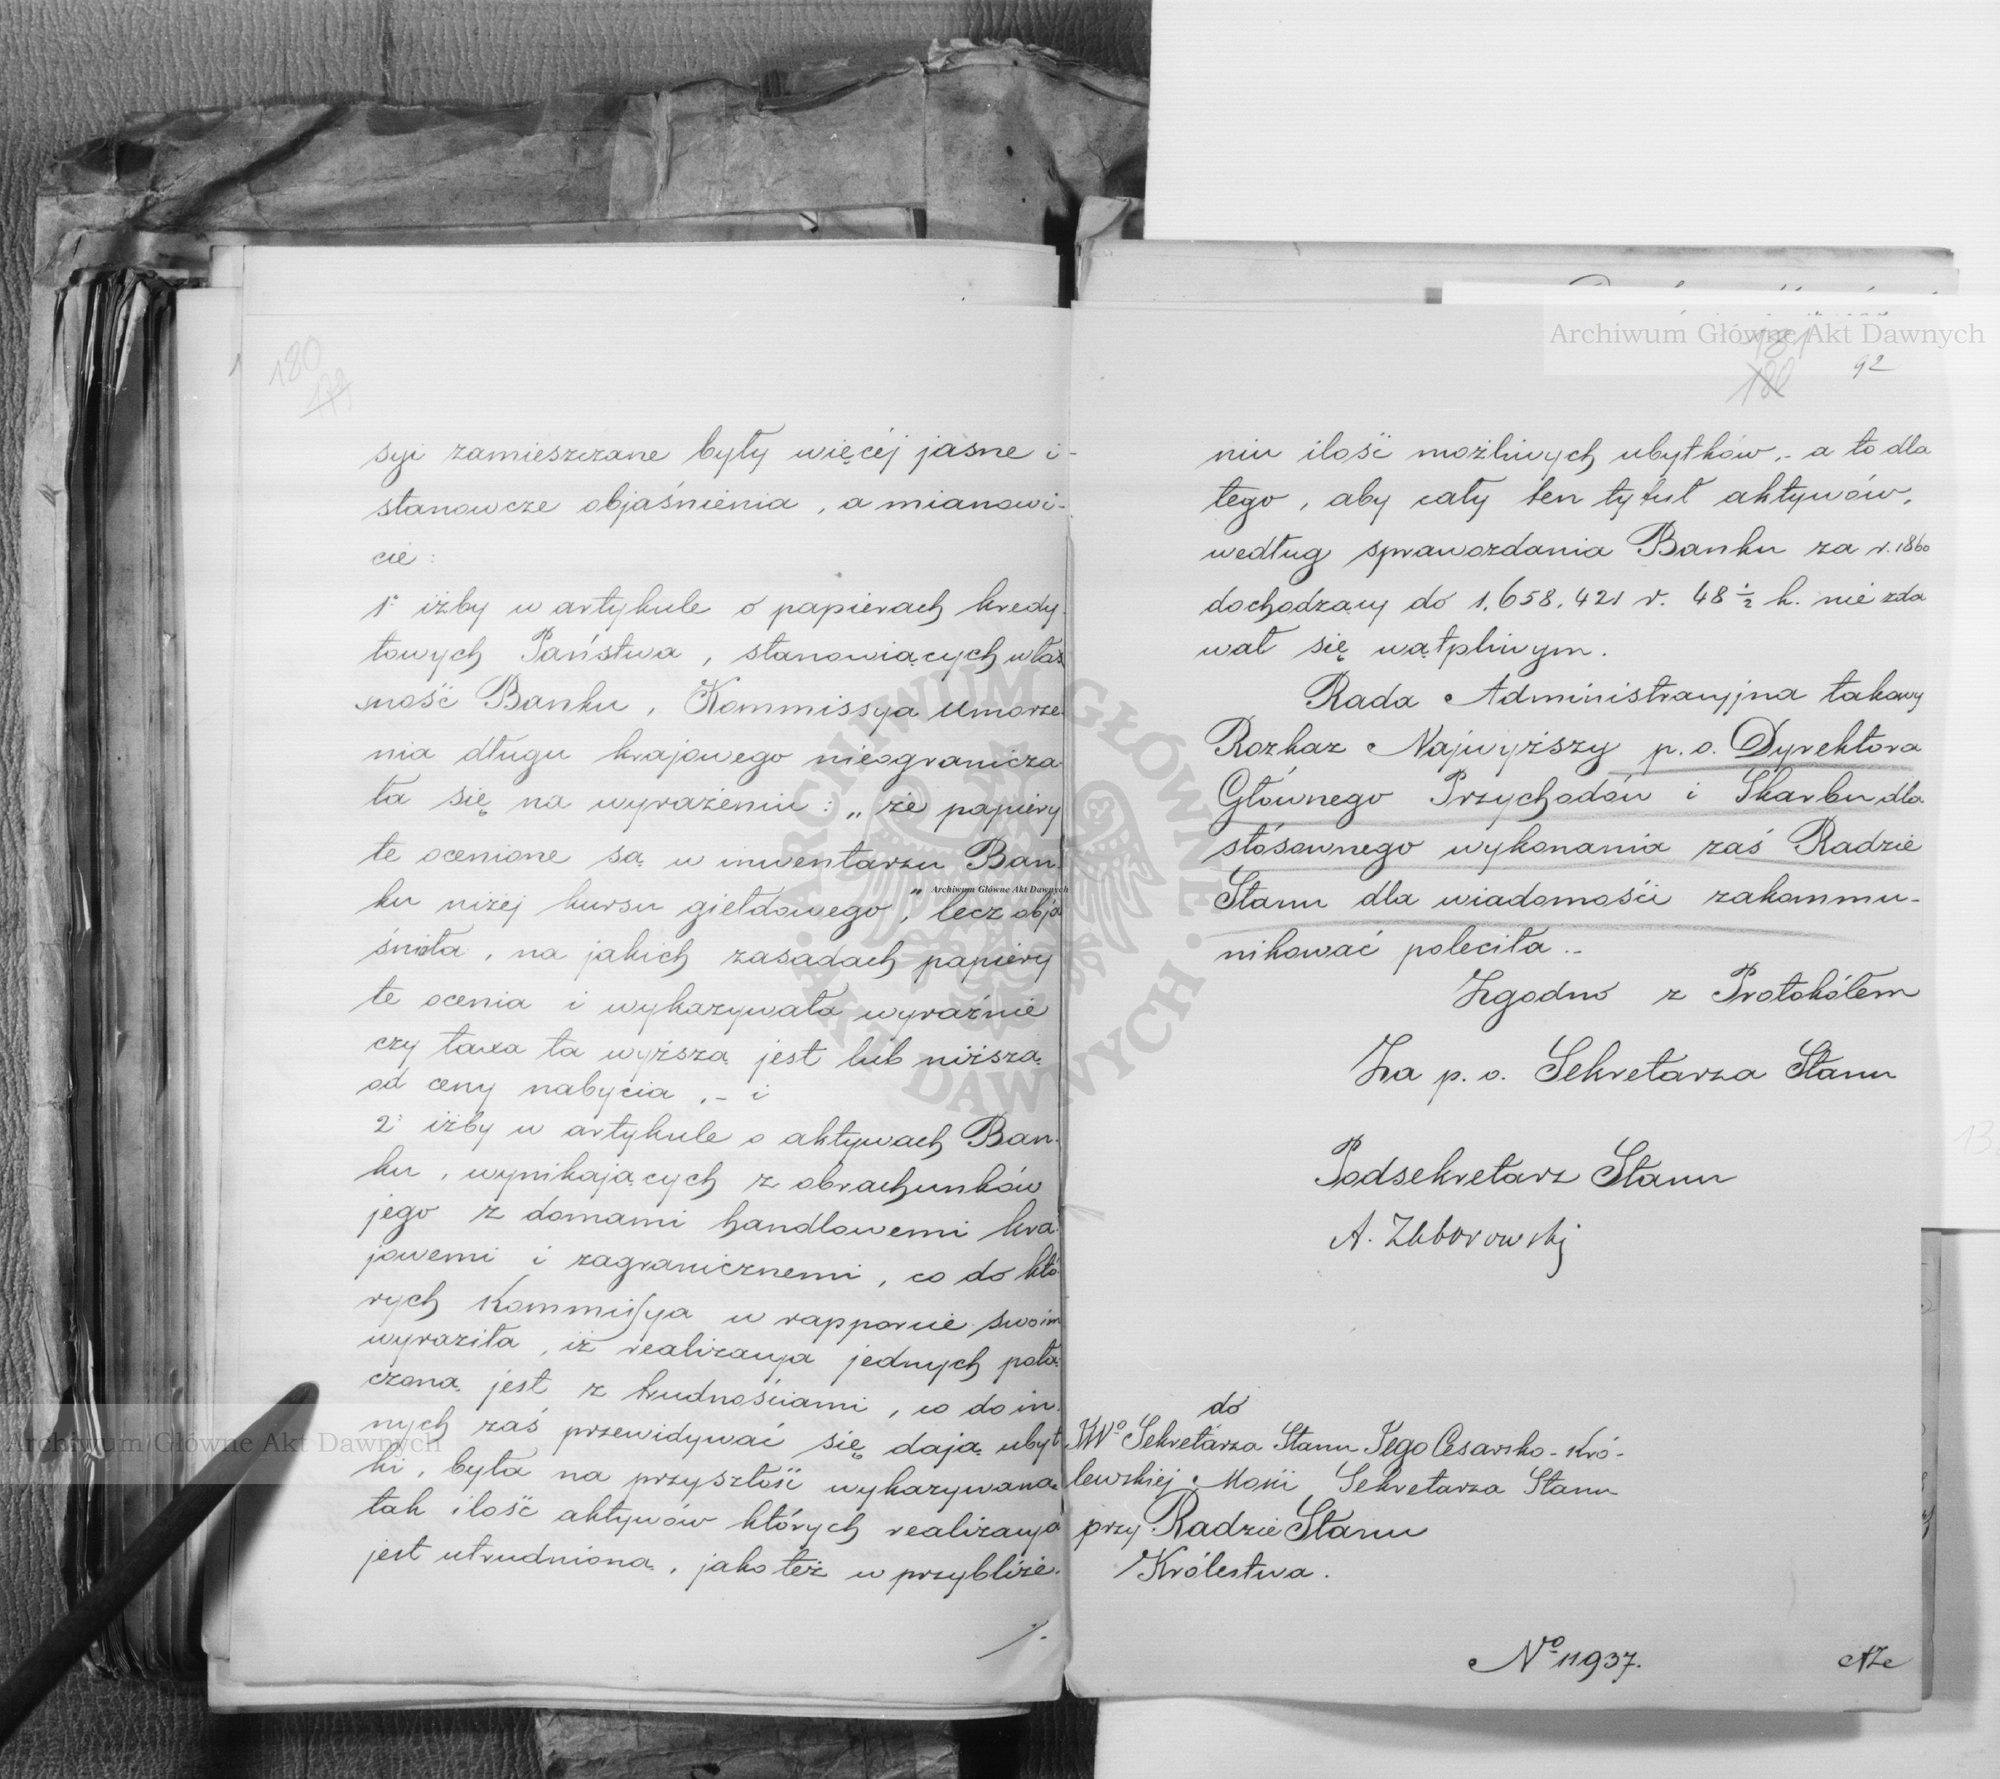 180
179
syi zamieszczane były więcéj jasne i
stanowcze objaśnienia, a mianowi-
cie:
1. iżby w artykule o papierach kredy-
towych Państwa, stanowiących włas-
ność Banku, Kommissya Umorze-
nia długu krajowego nieogranicza-
ła się na wyrażeniu: „że papiery
te ocenione są w inwentarzu Ban-
ku niżéj kursu giełdowego," lecz obja-
śniła, na jakich zasadach papiery
te ocenia i wykazywała wyraźnie
czy taxa ta wyższą jest lub niższą
od ceny nabycia, - i
2. iżby w artykule o aktywach Ban-
ku, wynikających z obrachunków
jego z domami handlowemi kra-
jowemi i zagranicznemi, co do któ-
rych Kommissya w rapporcie swoim
wyraziła, iż realizacya jednych połą-
czoną jest z trudnościami, co do in-
nych zaś przewidywać się dają ubyt-
ki, była na przyszłość wykazywana
tak ilość aktywów których realizacya
jest utrudnioną, jako też w przybliże-
/.
181
180
92
niu ilość możliwych ubytków, - a to dla
tego, aby cały ten tytuł aktywów,
według sprawozdania Banku za r. 1860
dochodzący do 1,658,421 r. 48 ½ k. nie zda
wał się wątpliwym.
Rada Administracyjna takowy
Rozkaz Najwyższy p. o. Dyrektora
Głównego Przychodów i Skarbu dla
stósownego wykonania zaś Radzie
Stanu dla wiadomości zakommu-
nikować poleciła.-
Zgodno z Protokółem
Za p. o. Sekretarza Stanu
Podsekretarz Stanu
A. Zborowski
do
JWº Sekretarza Stanu Jego Cesarsko-Kró-
lewskiéj Mości Sekretarza Stanu
przy Radzie Stanu
Królestwa.
Nº 11937.
Archiwum Główne Akt Dawnych
Archiwum Główne Akt Dawnych
Archiwum Główne Akt Dawnych
ARCHIWUM GŁÓWNE AKT DAWNYCH